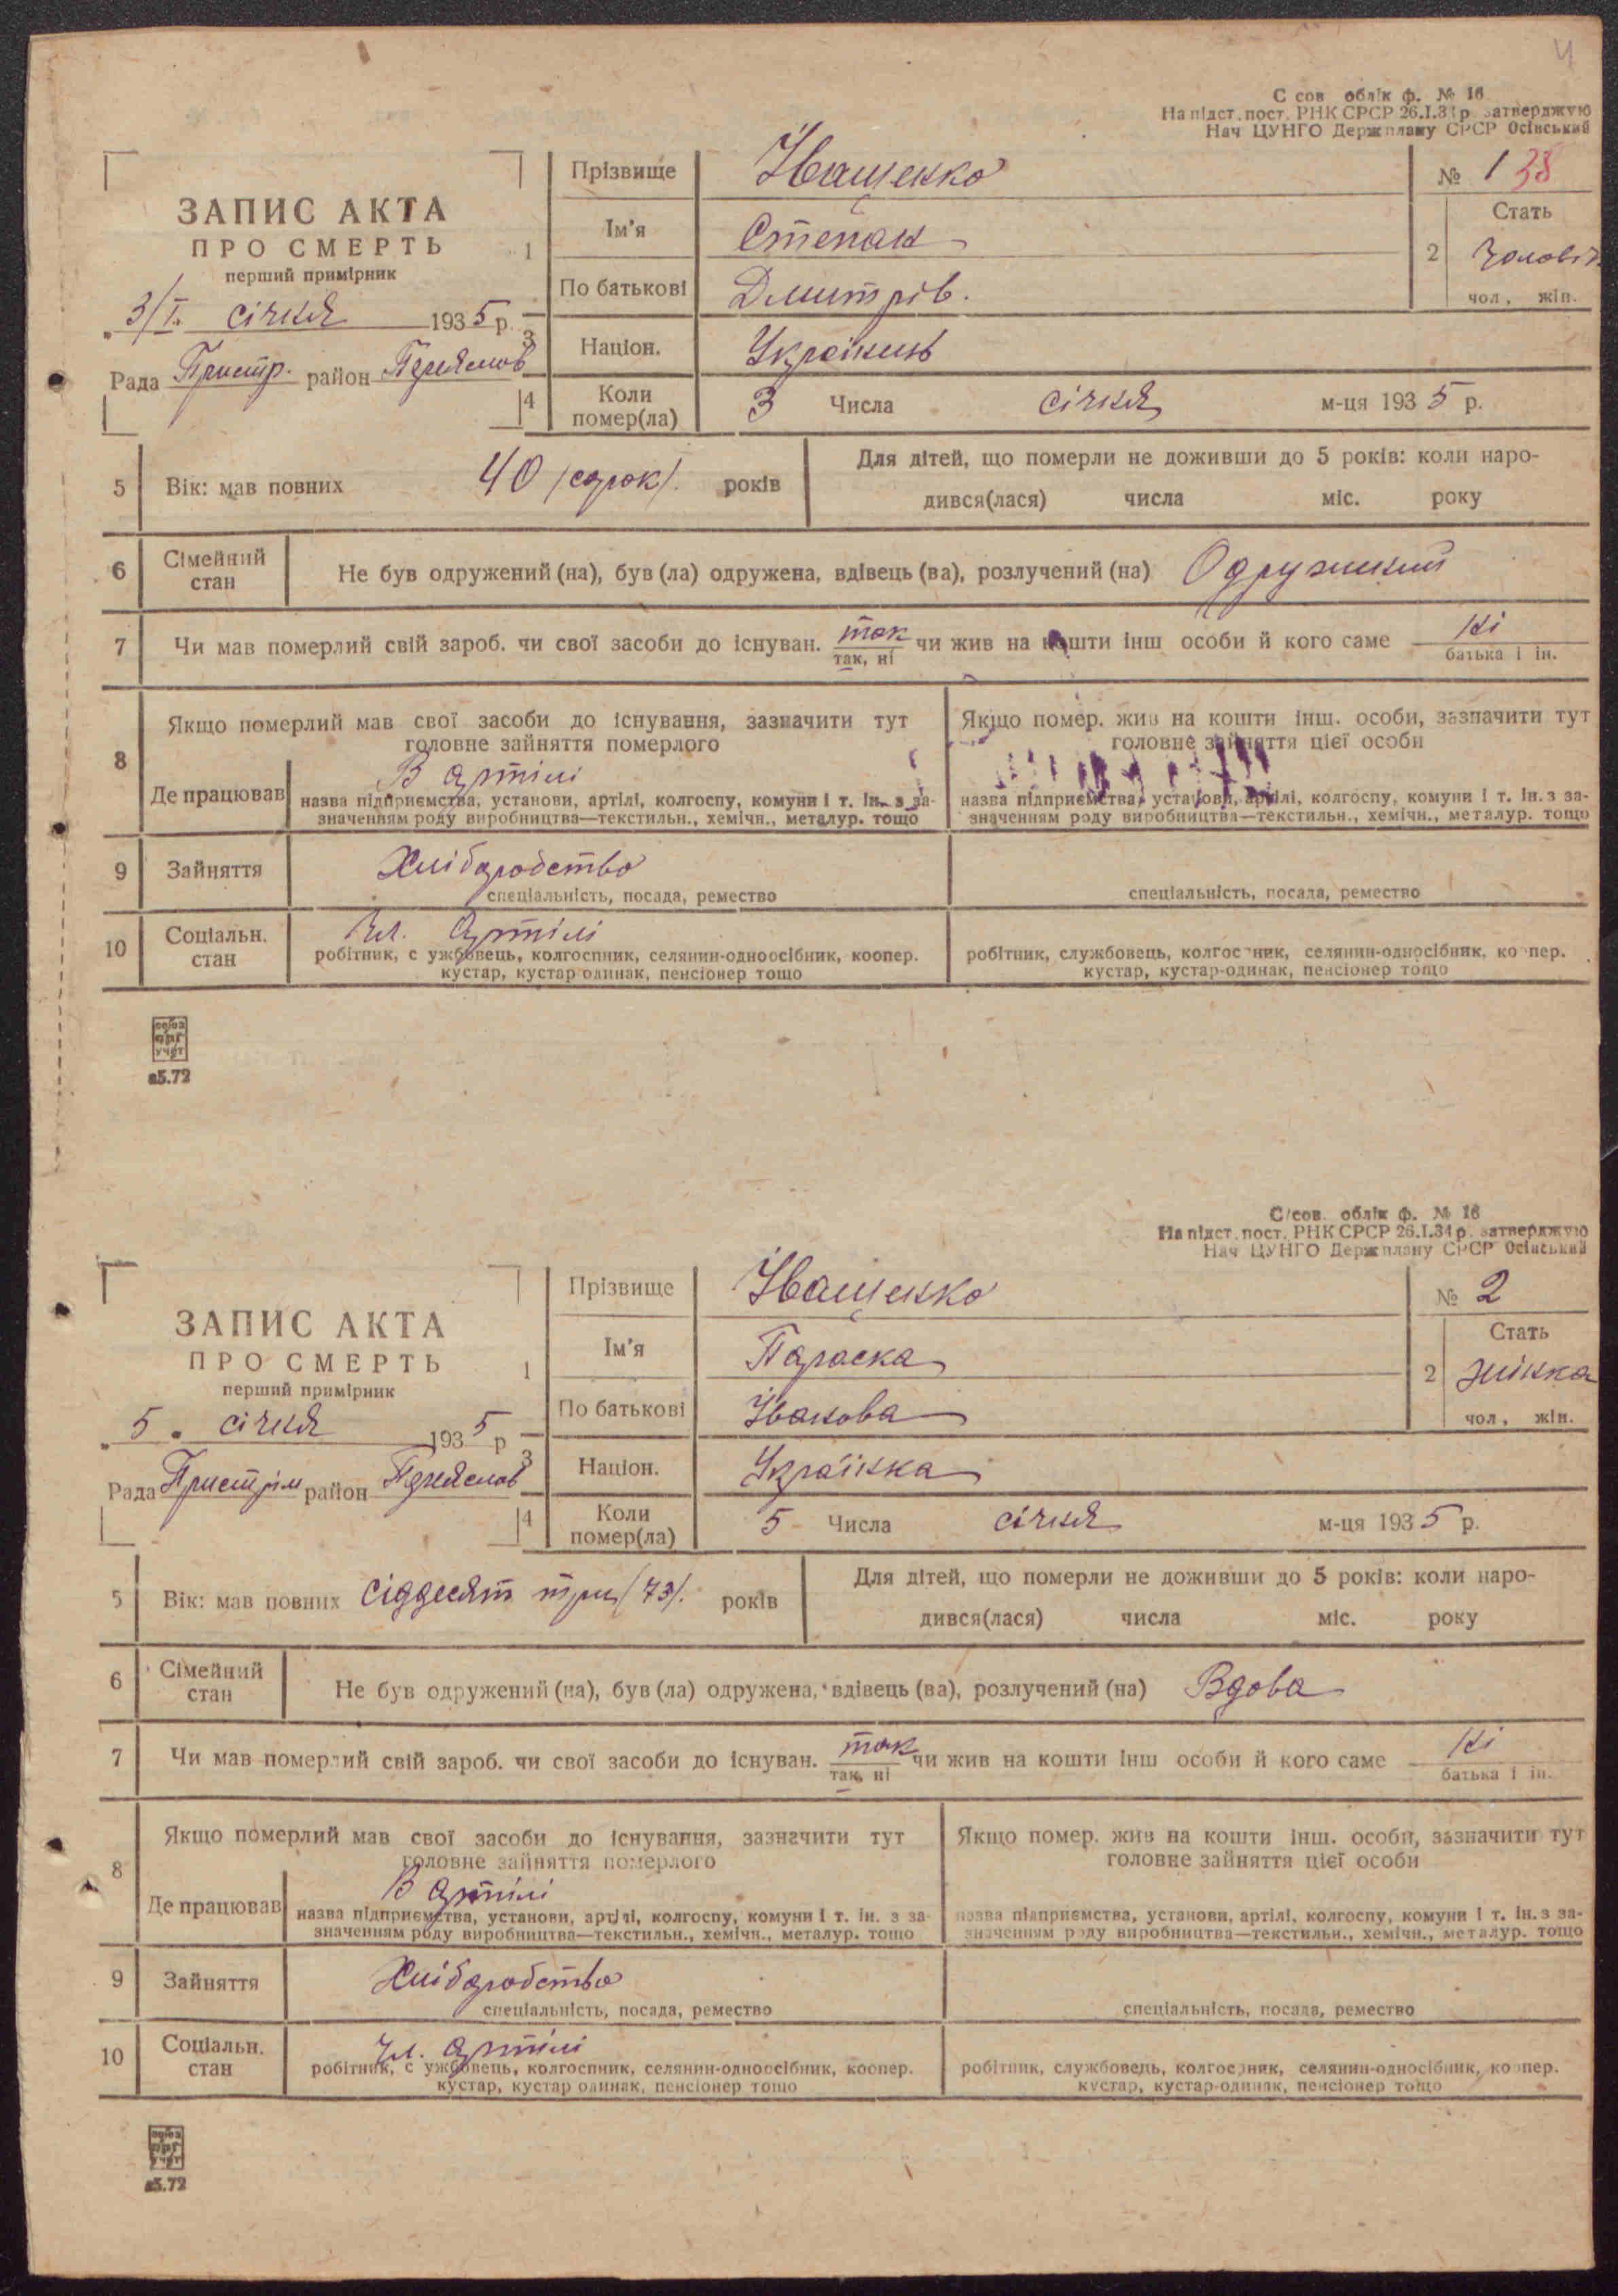 4
С сов облік ф. № 16
На підст. пост. РНК СРСР 26.І.34 р. затверджую
Нач ЦУНГО Держплану СРСР Осінський
ЗАПИС АКТА
ПРО СМЕРТЬ
перший примірник
3/І. січня 1935 р.
Рада Пристр. район
1
Прізвище Іващенко
Ім'я Степан
По батькові Дмитрів.
№ 1 38
2 Стать
Чоловік
чол, жін.
3 Націон. Українець
4 Коли помер(ла) 3 Числа січня м-ця 1935 р.
5 Вік: мав повних 40 /сорок/. років
Для дітей, що померли не доживши до 5 років: коли наро-
дився(лася) числа міс. року
6 Сімейний стан Не був одружений (на), був (ла) одружена, вдівець (ва), розлучений (на) Одружений
7 Чи мав померлий свій зароб. чи свої засоби до існуван. так чи жив на кошти інш особи й кого саме ні
так, ні батька і ін.
8 Якщо померлий мав свої засоби до існування, зазначити тут
головне зайняття померлого
Де працював В артілі
назва підприємства, установи, артілі, колгоспу, комуни і т. ін. з за-
значенням роду виробництва—текстильн., хемічн., металур. тощо
Якщо помер. жив на кошти інш. особи, зазначити тут
головне зайняття цієї особи
назва підприємства, установи, артілі, колгоспу, комуни і т. ін. з за-
значенням роду виробництва—текстильн., хемічн., металур. тощо
9 Зайняття Хліборобство
спеціальність, посада, ремество
спеціальність, посада, ремество
10 Соціальн. стан Чл. Артілі
робітник, с ужбовець, колгоспник, селянин-одноосібник, коопер.
кустар, кустар одинак, пенсіонер тощо
робітник, службовець, колгос ник, селянин-односібник, ко пер.
кустар, кустар-одинак, пенсіонер тощо
союз
орг
учет
а5.72
С/сов. облік ф. № 16
На підст. пост. РНК СРСР 26.І.34 р. затверджую
Нач ЦУНГО Держплану СРСР Осінський
ЗАПИС АКТА
ПРО СМЕРТЬ
перший примірник
5 січня 1935 р
Рада Пристром район
1
Прізвище Іващенко
Ім'я Параска
По батькові Іванова
№ 2
2 Стать
жінка
чол, жін.
3 Націон. Українка
4 Коли помер(ла) 5 Числа січня м-ця 1935 р.
5 Вік: мав повних сіддесят три /73/. років
Для дітей, що померли не доживши до 5 років: коли наро-
дився(лася) числа міс. року
6 Сімейний стан Не був одружений (на), був (ла) одружена, вдівець (ва), розлучений (на) Вдова
7 Чи мав померлий свій зароб. чи свої засоби до існуван. так чи жив на кошти інш особи й кого саме ні
так, ні батька і ін.
8 Якщо померлий мав свої засоби до існування, зазначити тут
головне зайняття померлого
Де працював В артілі
назва підприємства, установи, артілі, колгоспу, комуни і т. ін. з за-
значенням роду виробництва—текстильн., хемічн., металур. тощо
Якщо помер. жив на кошти інш. особи, зазначити тут
головне зайняття цієї особи
назва підприємства, установи, артілі, колгоспу, комуни і т. ін. з за-
значенням роду виробництва—текстильн., хемічн., металур. тощо
9 Зайняття Хліборобство
спеціальність, посада, ремество
спеціальність, посада, ремество
10 Соціальн. стан Чл. артілі
робітник, с ужбовець, колгоспник, селянин-одноосібник, коопер.
кустар, кустар одинак, пенсіонер тощо
робітник, службовець, колгос ник, селянин-односібник, ко пер.
кустар, кустар-одинак, пенсіонер тощо
союз
орг
учет
а5.72